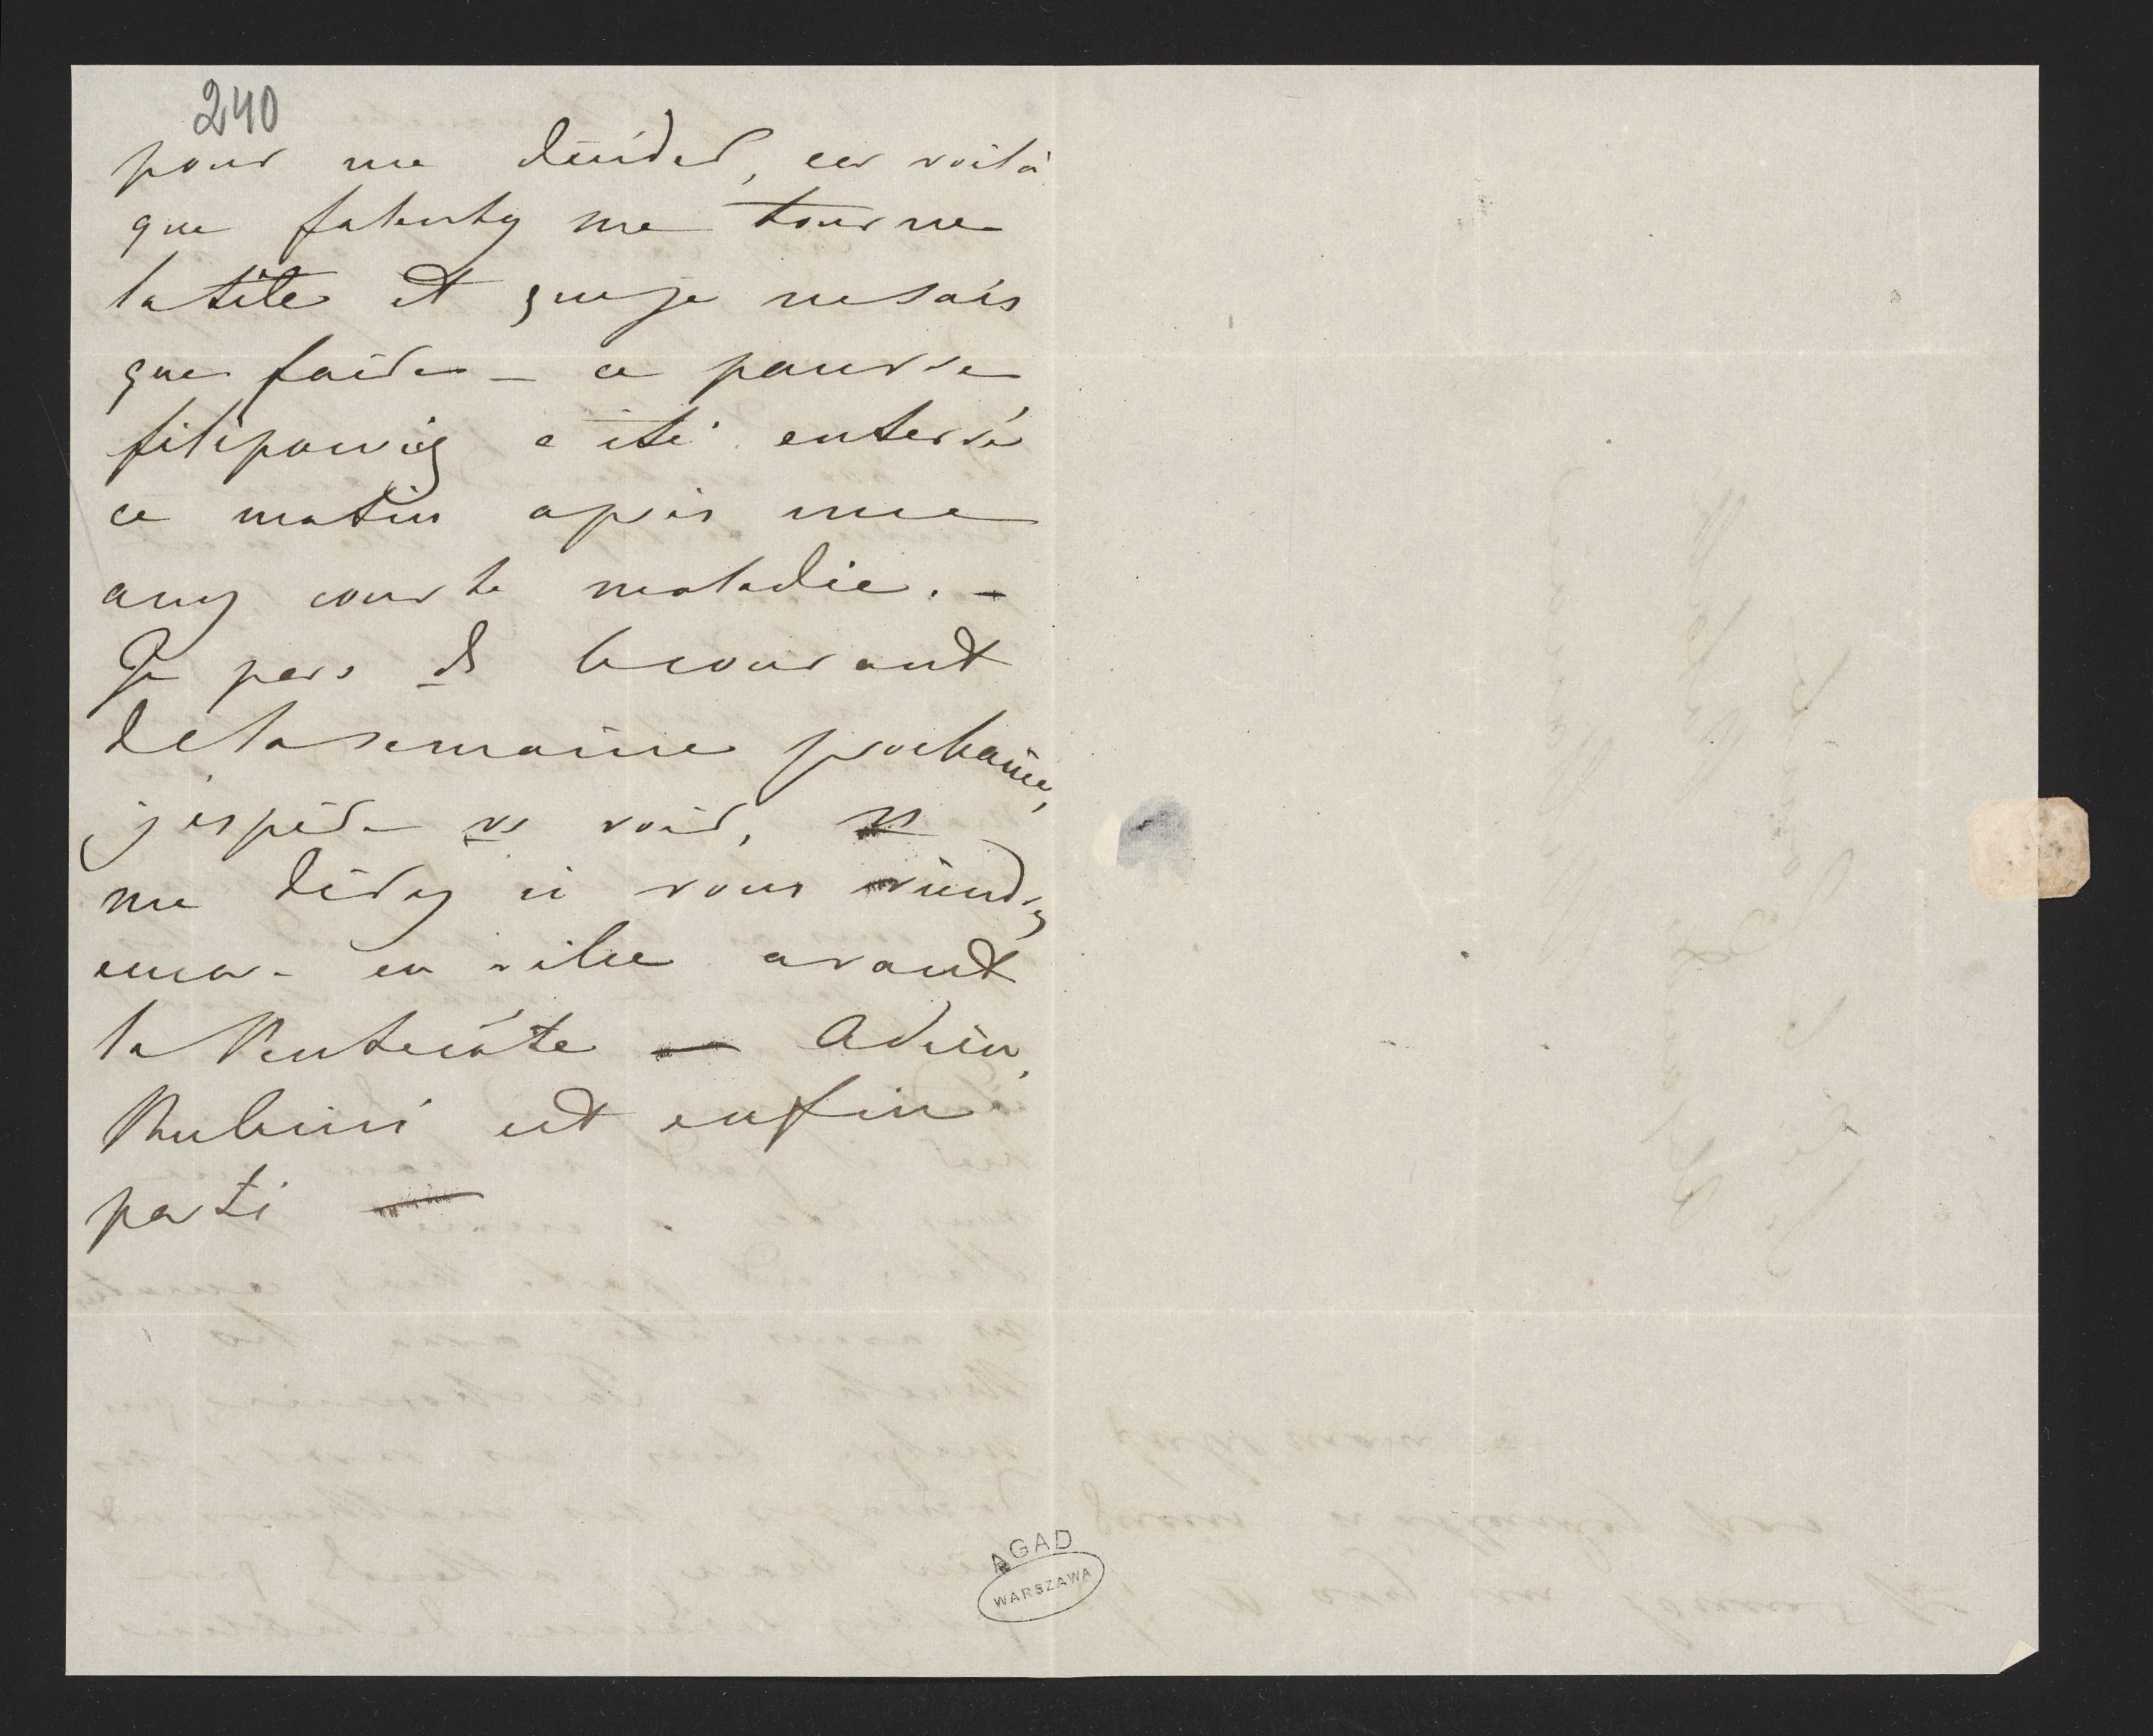 240
pour me décider, car voilà
que Falenty me tourne
la tête et que je ne sais
que faire – ce pauvre
filipowicz a été enterré
ce matin après une
assez courte maladie. –
Je pars ds le courant
de la semaine prochaine,
j'espère vs voir, vs
me direz si vous viendrez
encor- en ville avant
la Pentecôte — Adieu,
Rubini est enfin
parti —
AGAD
WARSZAWA